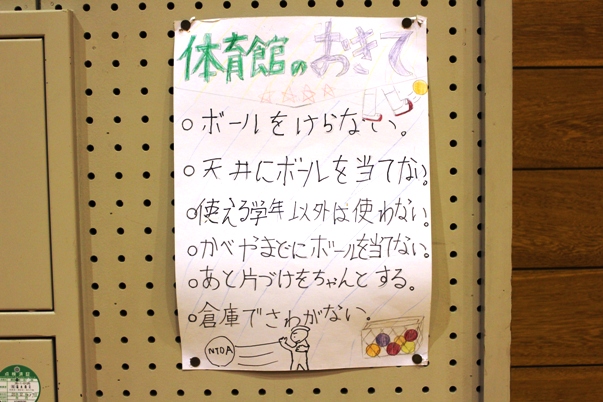 体育館のおきて
○ボールをけらない。
○天井にボールを当てない。
○使える学年以外は使わない。
○かべやまどにボールを当てない。
○あと片づけをちゃんとする。
○倉庫でさわがない。
NTOA